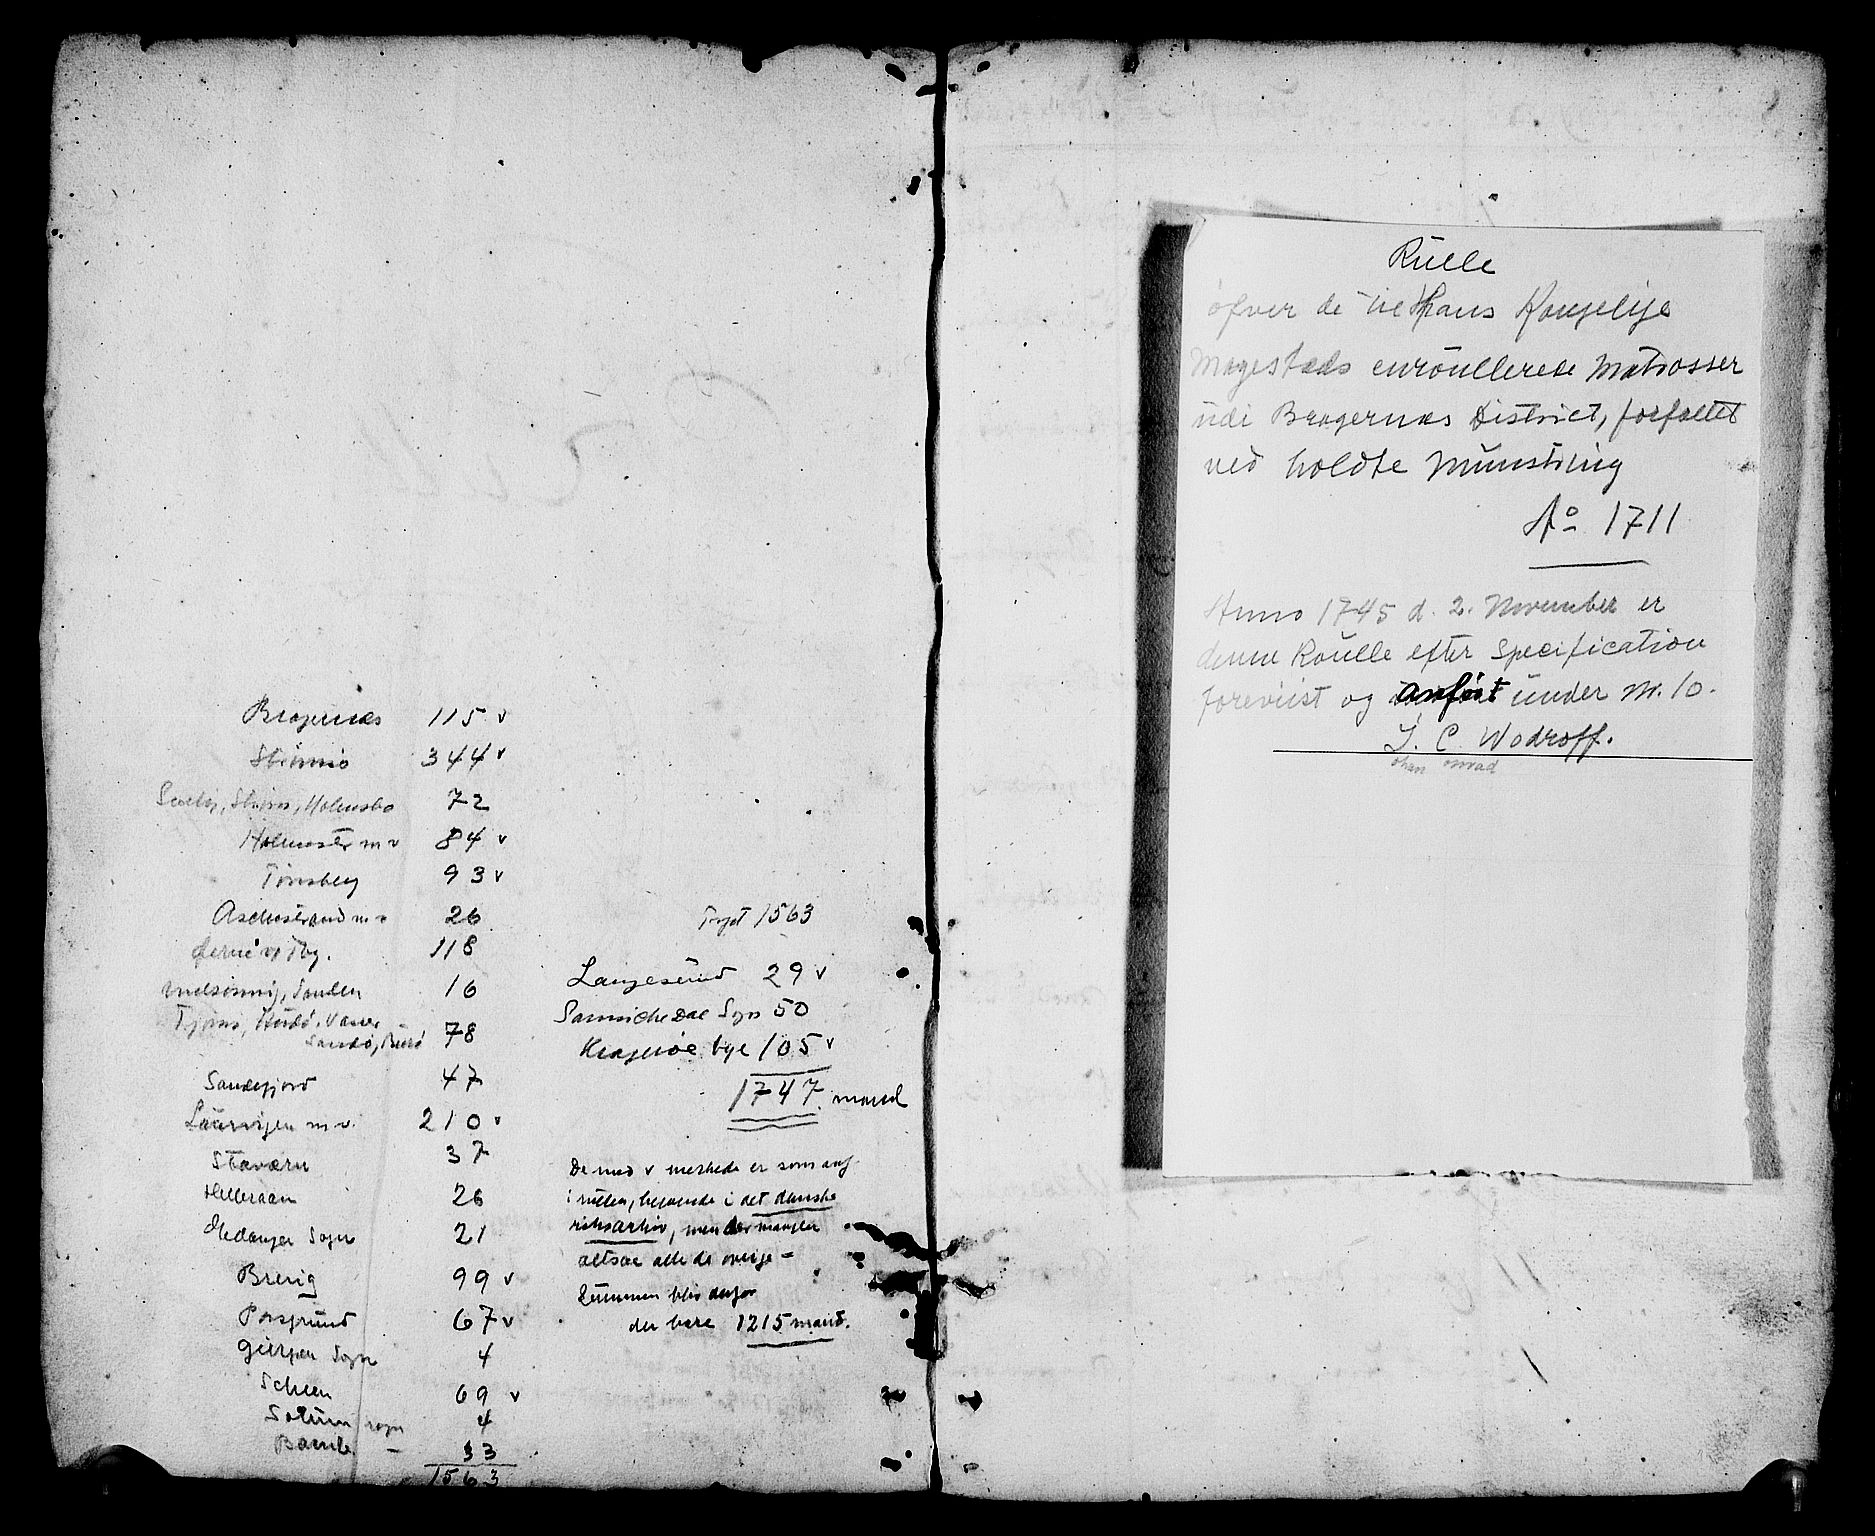 Bragernæs 115 v
Strömsö 344 v
Svelvig, Ströms, Holmsbo 72
Holmestr m v 84 v
Tönsberg 93 v
Aschestrand m v 26
Øerne v/ Tbg. 118
Melsomvig, Sanden 16
Tjömö, Hudö, Vasser
Sandö, 78
Sandefjord 47
Laurvigen m v. 210 v
Staværn 37
Helleraaen 26
Eidanger Sogn 21
Brevig 99 v
Porsgrund 67 v
Gierpen Sogn 4
Scheen 69 v
Solum sogn 4
Bamble – 33
1563
1563
Langesund 29 v
Sannichedal Sogn 50
Kragerøe bye 105 v
1747 mand
De med v merkede er som anf
i rullen, beroende i det danske
riksarkiv, men der mangler
altsaa alle de øvrige –
Summen blir derfor
der bare 1215 mand.
Rulle
öfver de til Hans Kongelige
Magestæds enroullerede Matrosser
udi Bragernæs District, forfattet
ved holdte Münstring
Ao 1711
Anno 1745 d. 2. November er
denne Roulle efter Specification
foreviist og anført under N. 10.
J. C. Wodroff.
ohan onrad